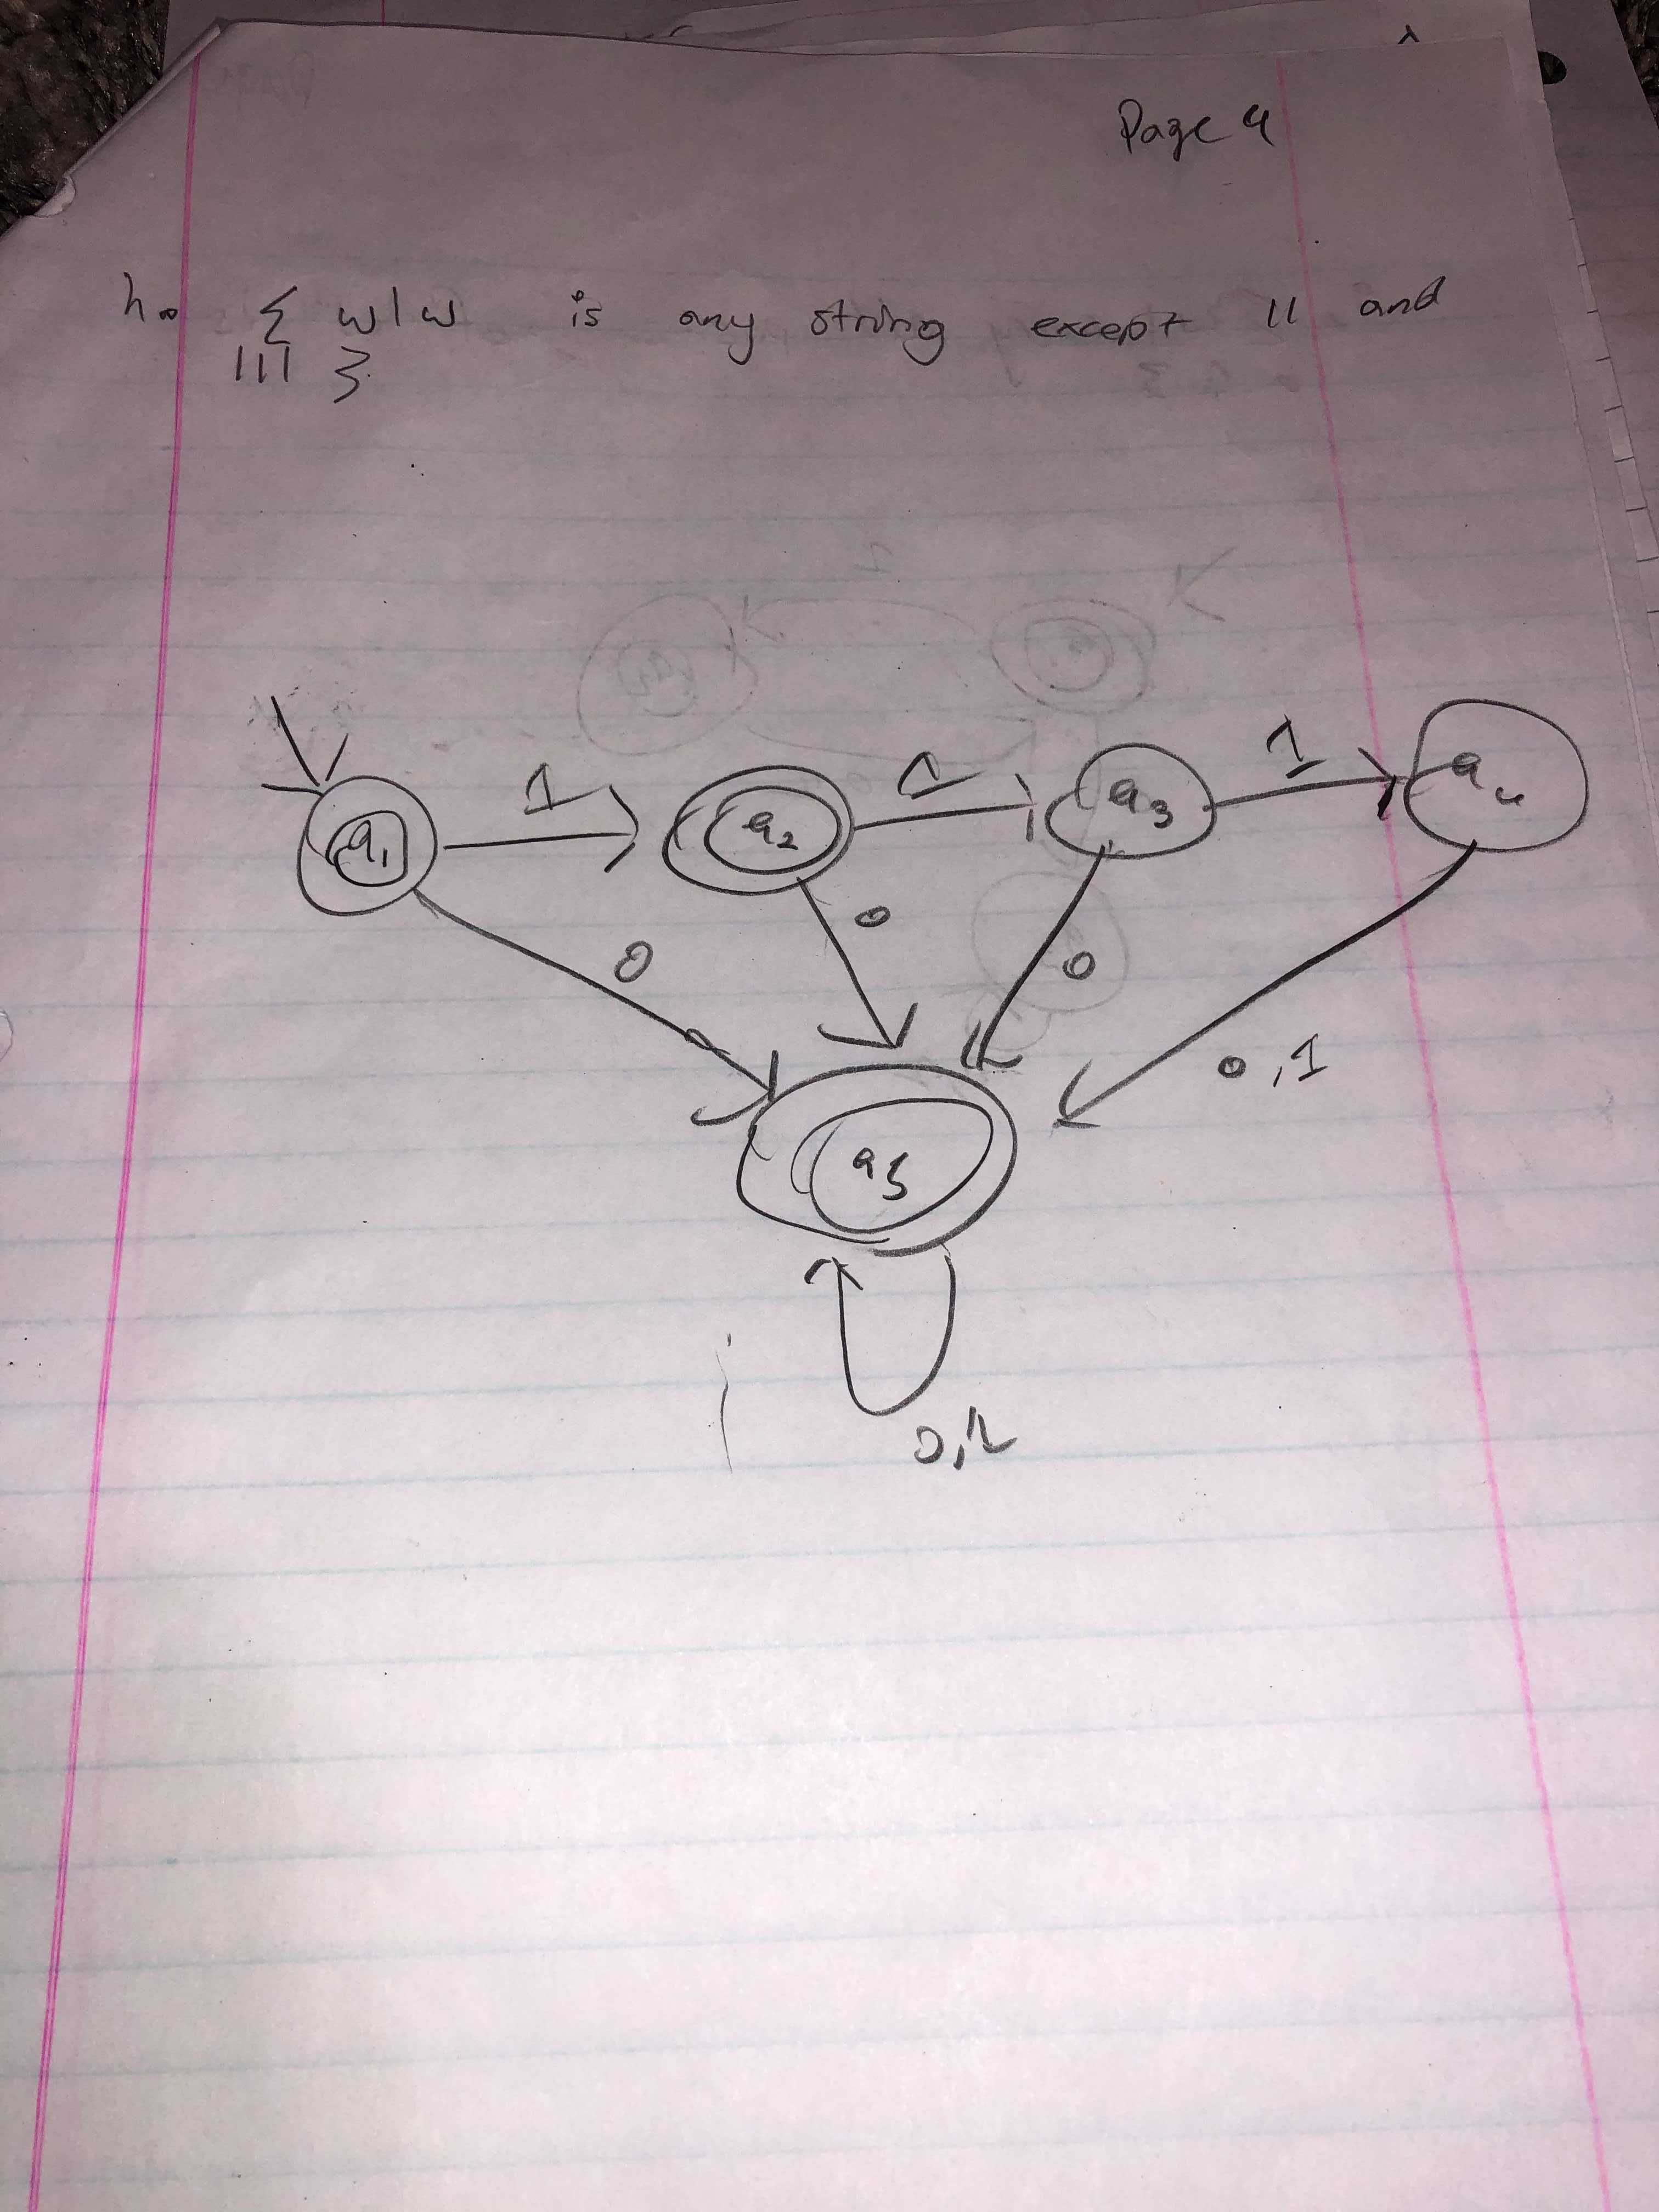 Page 4
h. { w|w is any string except 11 and
111 }
1 1 1
q1 q2 q3 q4
0 0 0 0,1
q5
0,1